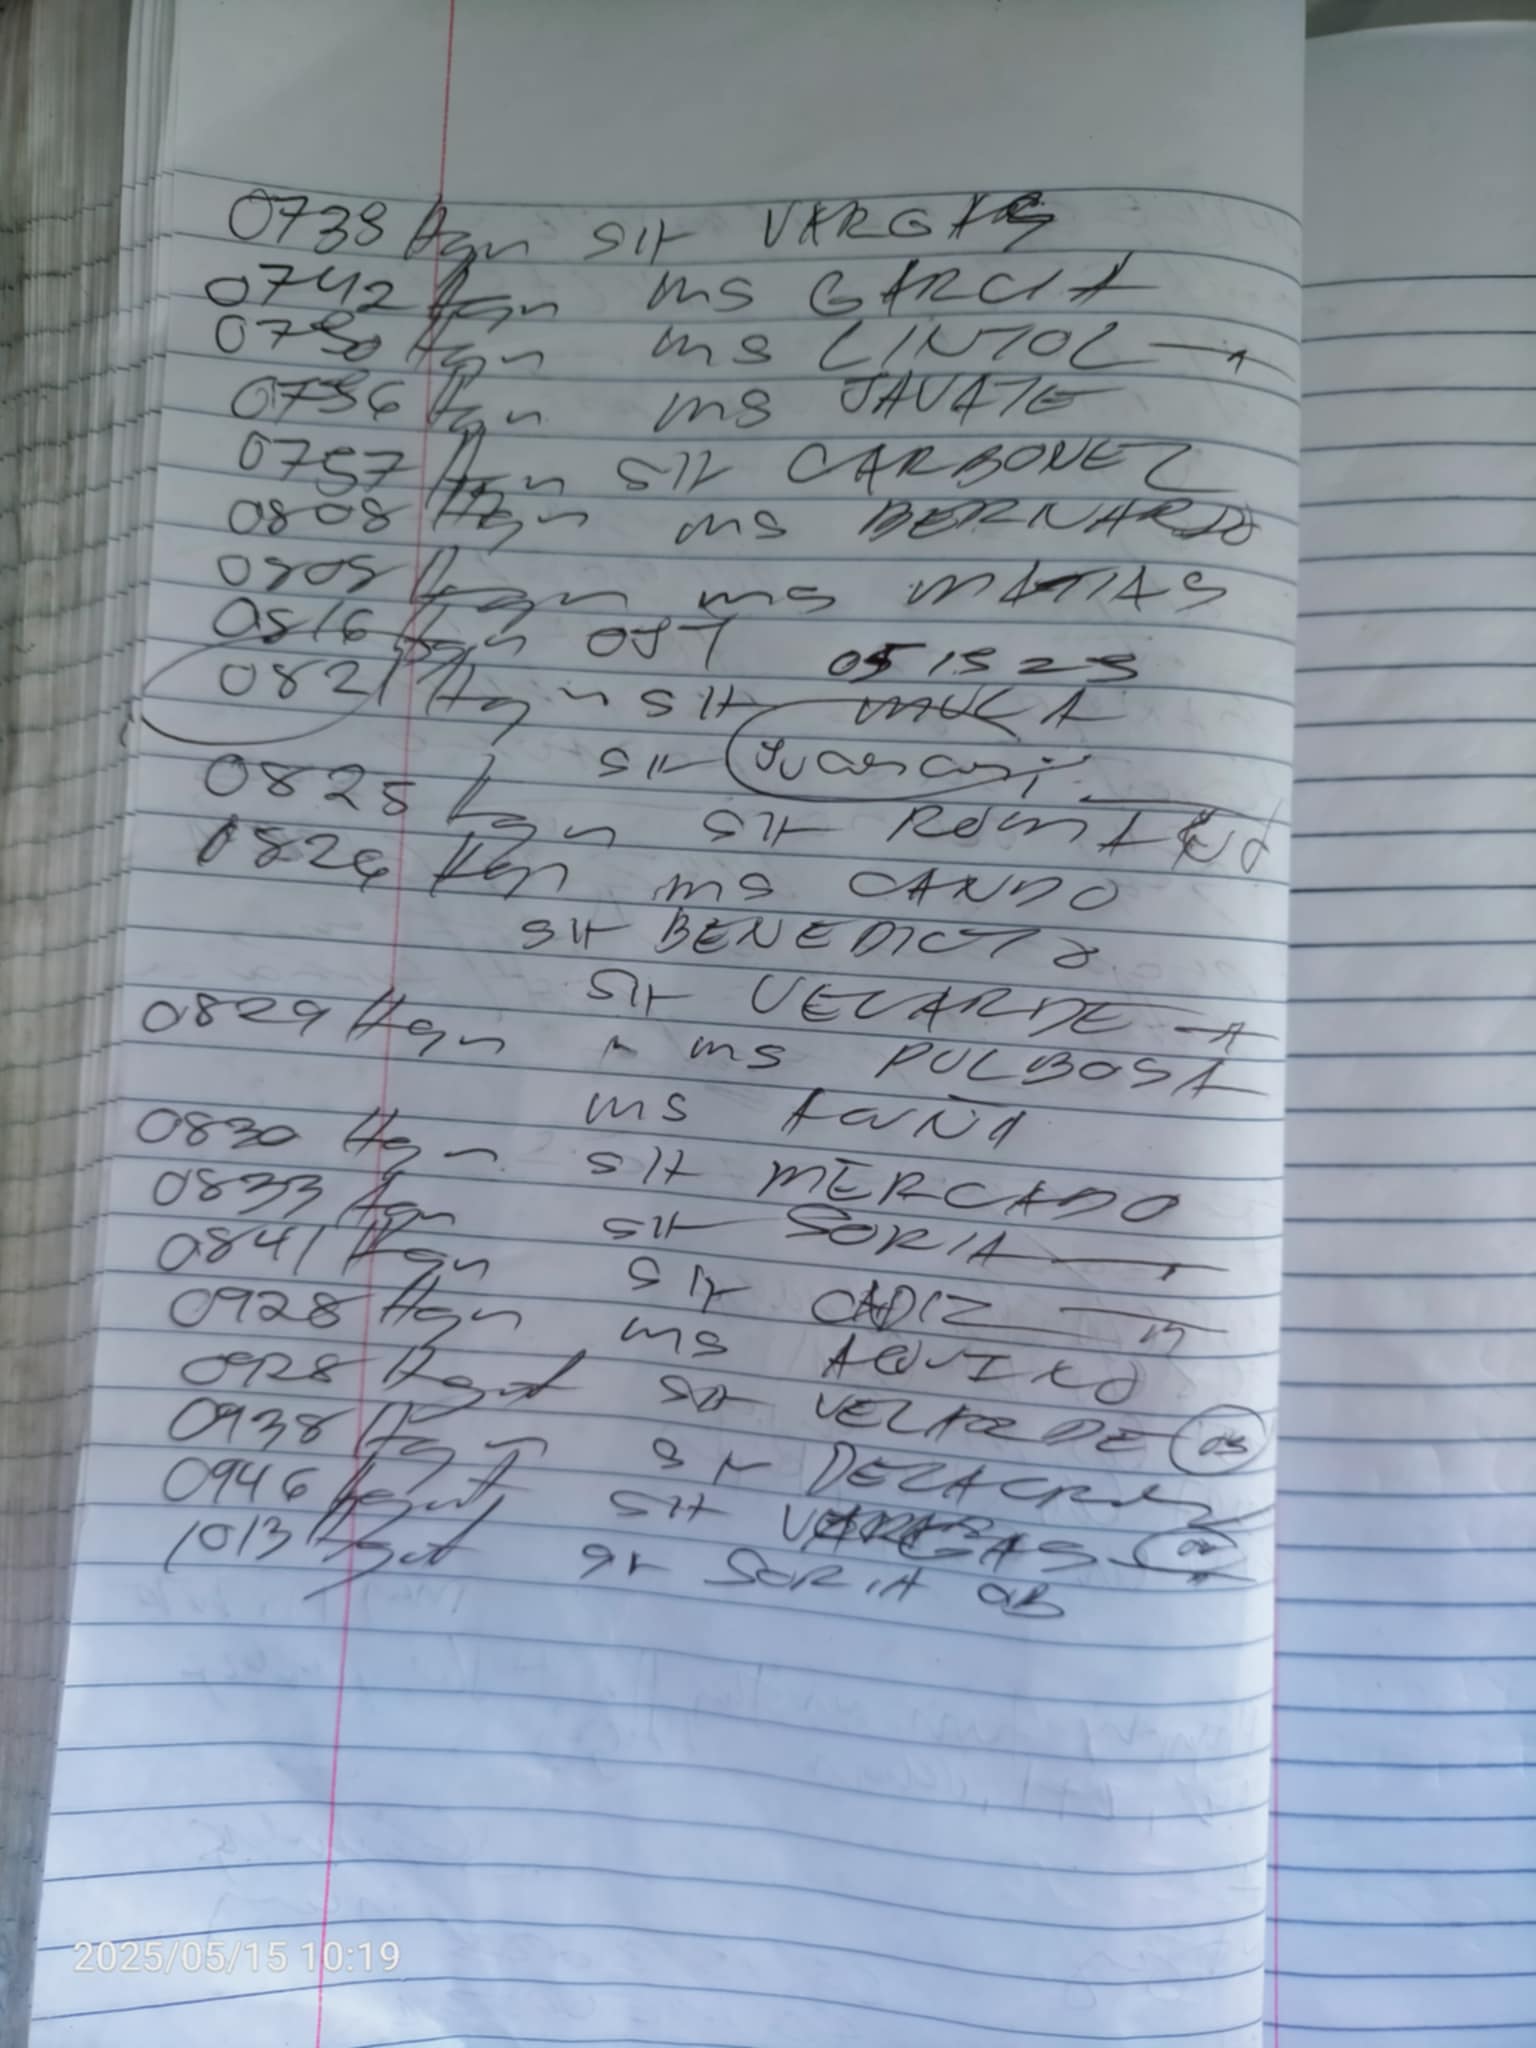 0738 Hgn SIR VARGAS
0742 Hgn MS GARCIA
0750 Hgn MS LINTOL
0756 Hgn MS JAVATE
0757 Hgn SIR CARBONEL
0808 Hgn MS BERNARDO
0808 Hgn MS MATIAS
0816 Hgn OJT 05 15 25
0821 Hgn SIR
SIR
0825 Hgn SIR ROMANO
0826 Hgn MS CANDO
SIR BENEDICTO
SIR VELARDE
0829 Hgn MS PULBOSA
MS ACUÑA
0830 Hgn SIR MERCADO
0833 Hgn SIR SORIA
0841 Hgn SIR CADIZ
0928 Hgn MS AQUINO
0928 SIR VELARDE
0938 Hgn SR DELACRUZ
0946 SIR VARGAS
1013 SR SORIA OB
2025/05/15 10:19